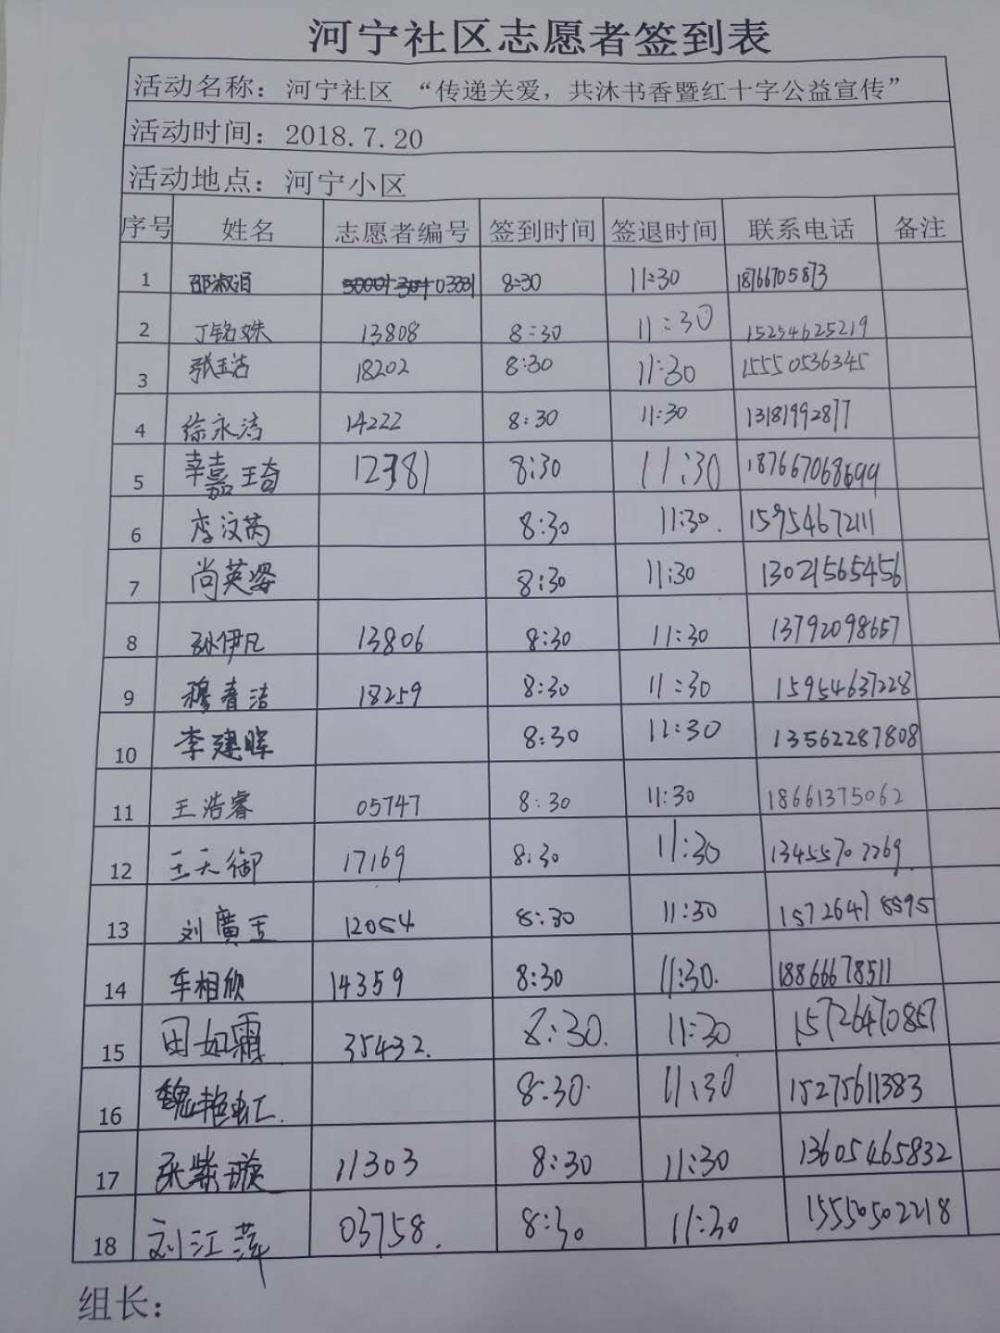 河宁社区志愿者签到表
活动名称：河宁社区 “传递关爱，共沐书香暨红十字公益宣传”
活动时间：2018.7.20
活动地点：河宁小区
序号 姓名 志愿者编号 签到时间 签退时间 联系电话 备注
1 邵淑娟 03331 8:30 11:30 18766705873
2 丁铭姝 13808 8:30 11:30 15254625219
3 张玉洁 18202 8:30 11:30 15550536345
4 徐永洁 14222 8:30 11:30 13181992877
5 辛嘉琦 12381 8:30 11:30 187667068699
6 李汶芮 8:30 11:30. 15954672111
7 尚英姿 8:30 11:30 13021565456
8 孙伊凡 13806 8:30 11:30 13792098657
9 穆春洁 18259 8:30 11:30 15954637228
10 李建晖 8:30 11:30 13562287808
11 王浩睿 05747 8:30 11:30 18661375062
12 王天御 17169 8:30 11:30 13455702269
13 刘廣玉 12054 8:30 11:30 15726478595
14 车相欣 14359 8:30 11:30. 18866678511
15 田如霜 35432. 8:30. 11:30 15726470857
16 魏艳虹. 8:30. 11:30 15275611383
17 张紫璇 11303 8:30 11:30 13605465832
18 刘江萍 03758. 8:30 11:30 15550502218
组长：